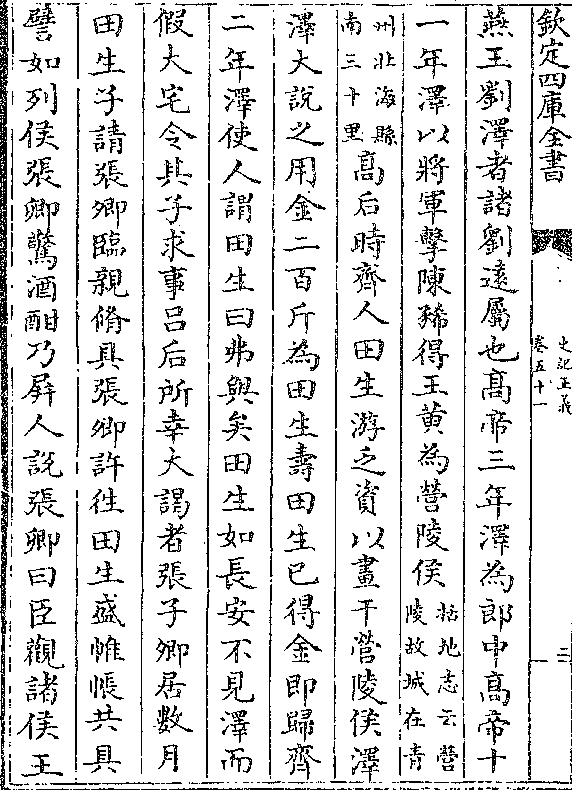 欽定四庫全書
史記正義
卷五十一
三
燕王劉澤者諸劉遠屬也髙帝三年澤為郎中髙帝十
一年澤以將軍擊陳豨得王黃為營陵侯括地志云營
陵故城在青
州北海縣
南三十里髙后時齊人田生游乏資以畫干營陵侯澤
澤大說之用金二百斤為田生壽田生已得金即歸齊
二年澤使人謂田生曰弗與矣田生如長安不見澤而
假大宅令其子求事呂后所幸大謁者張子卿居數月
田生子請張卿臨親脩具張卿許往田生盛帷帳共具
譬如列侯張卿驚酒酣乃屏人說張卿曰臣觀諸侯王